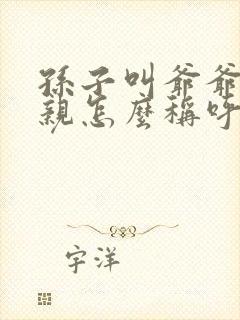 孫子叫爺爺
親怎麼稱呼
宇洋